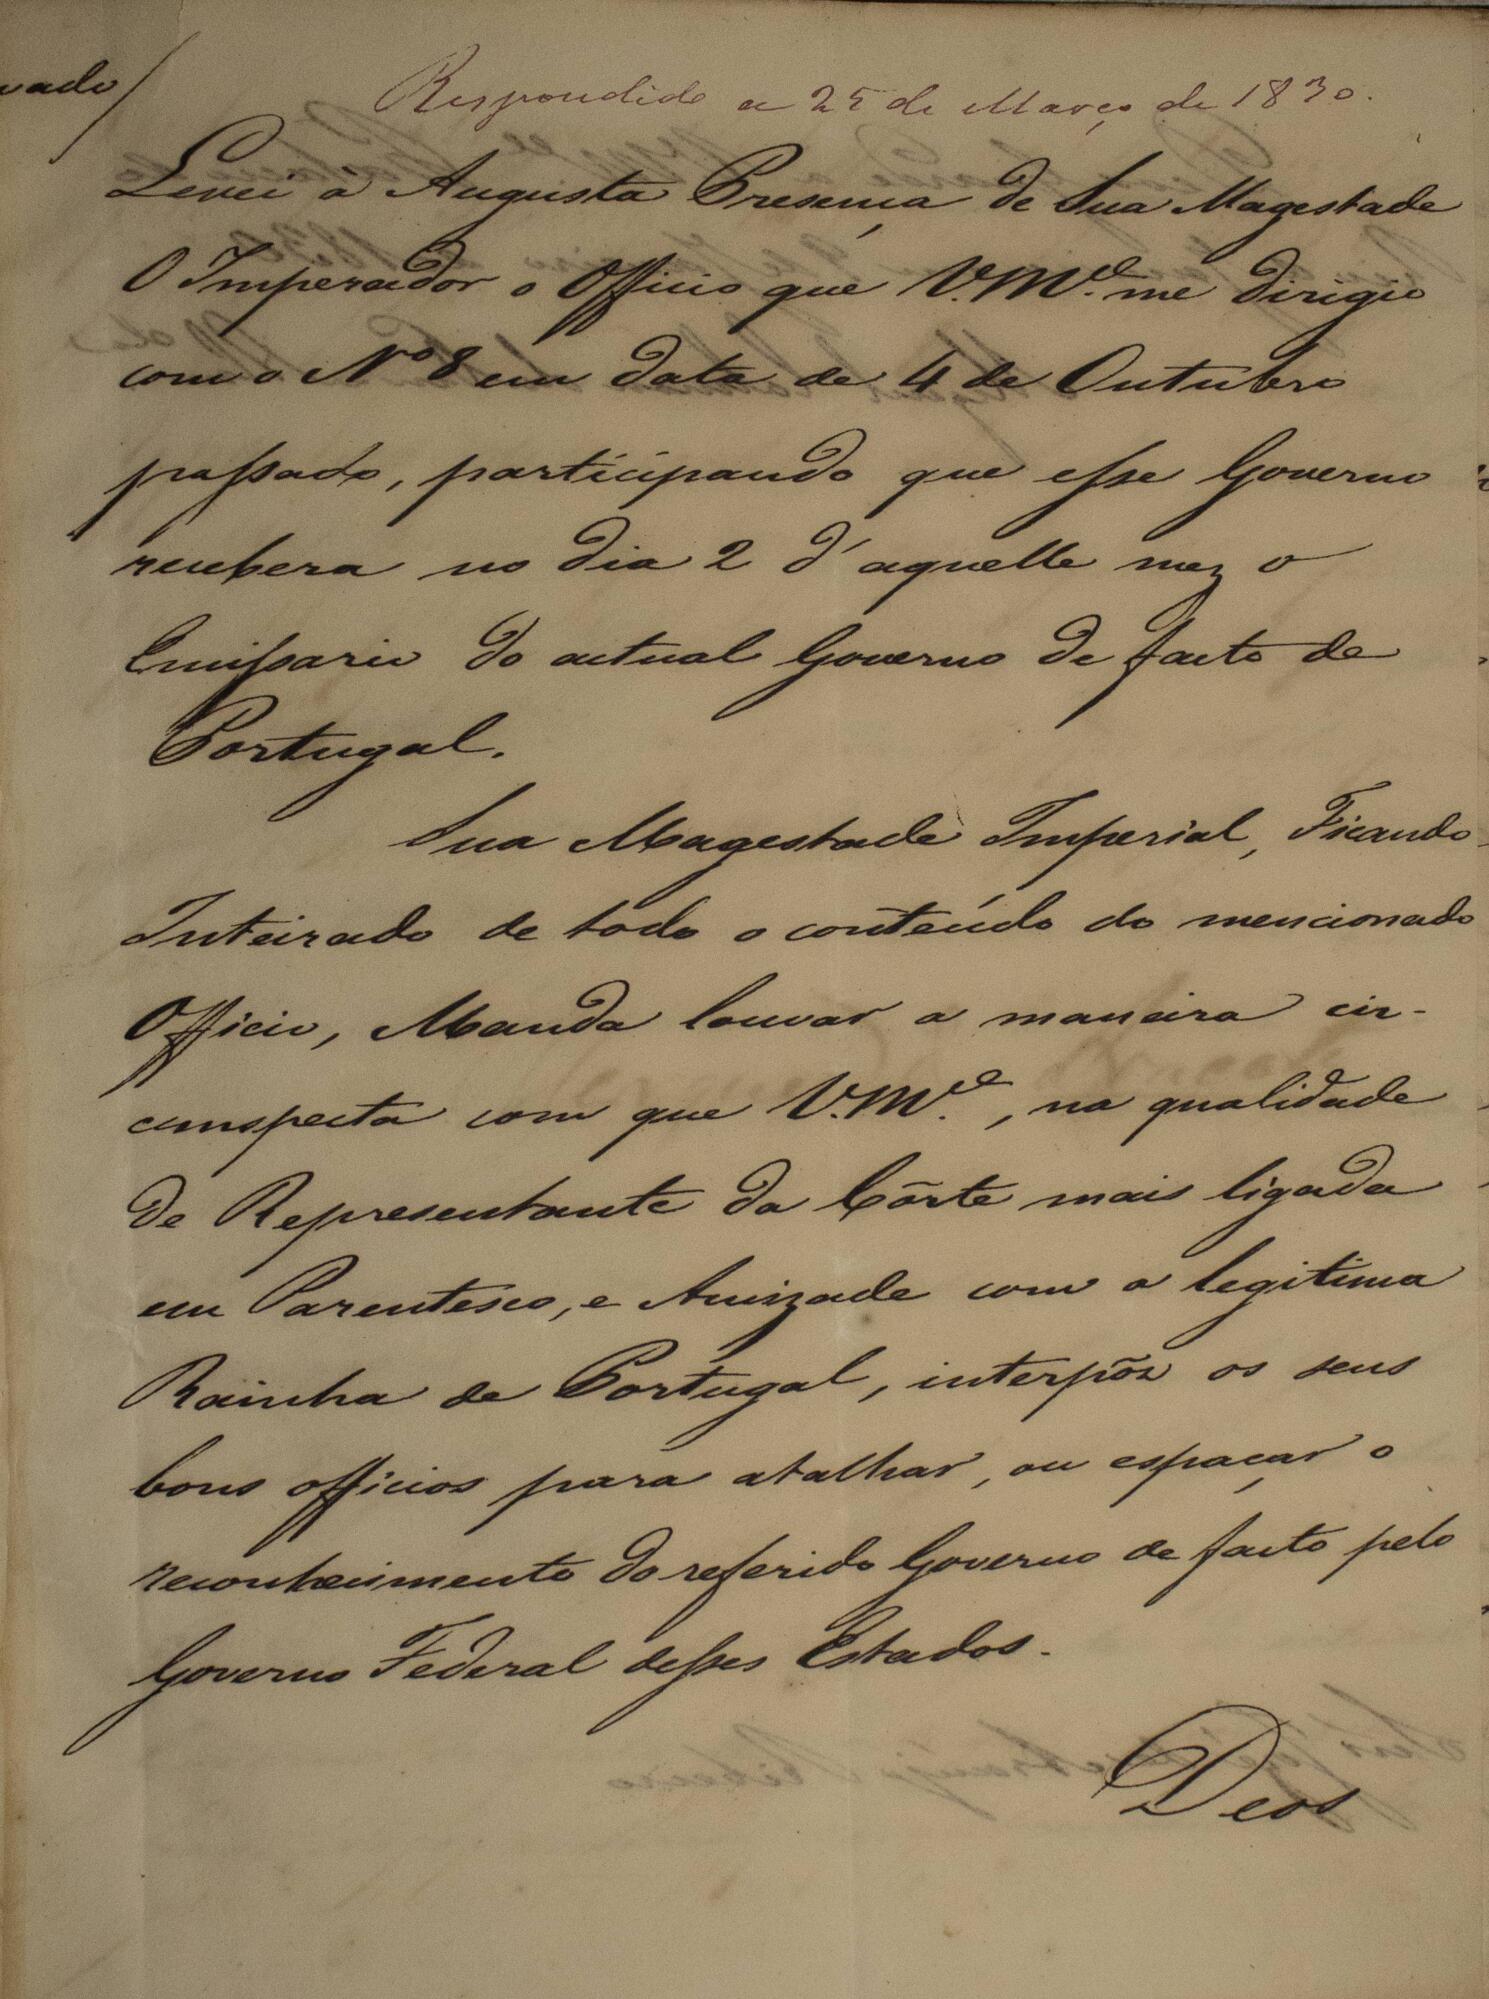 Respondido a 25 de Março de 1830.
Levei à Augusta Presença de Sua Magestade
O Imperador o Officio que V.M.ce me dirigio
com o Nº 8 em data de 4 de Outubro
passado, participando que esse Governo
recebera no dia 2 d'aquelle mez o
Emissario do actual Governo de facto de
Portugal.
Sua Magestade Imperial, Ficando
Inteirado de todo o conteúdo do mencionado
Officio, Manda louvar a maneira cir-
cunspecta com que V.M.ce, na qualidade
de Representante da Côrte mais ligada
em Parentesco, e Amizade com a legitima
Rainha de Portugal, interpôz os seus
bons officios para atalhar, ou espaçar o
reconhecimento do referido Governo de facto pelo
Governo Federal desses Estados.
Deos